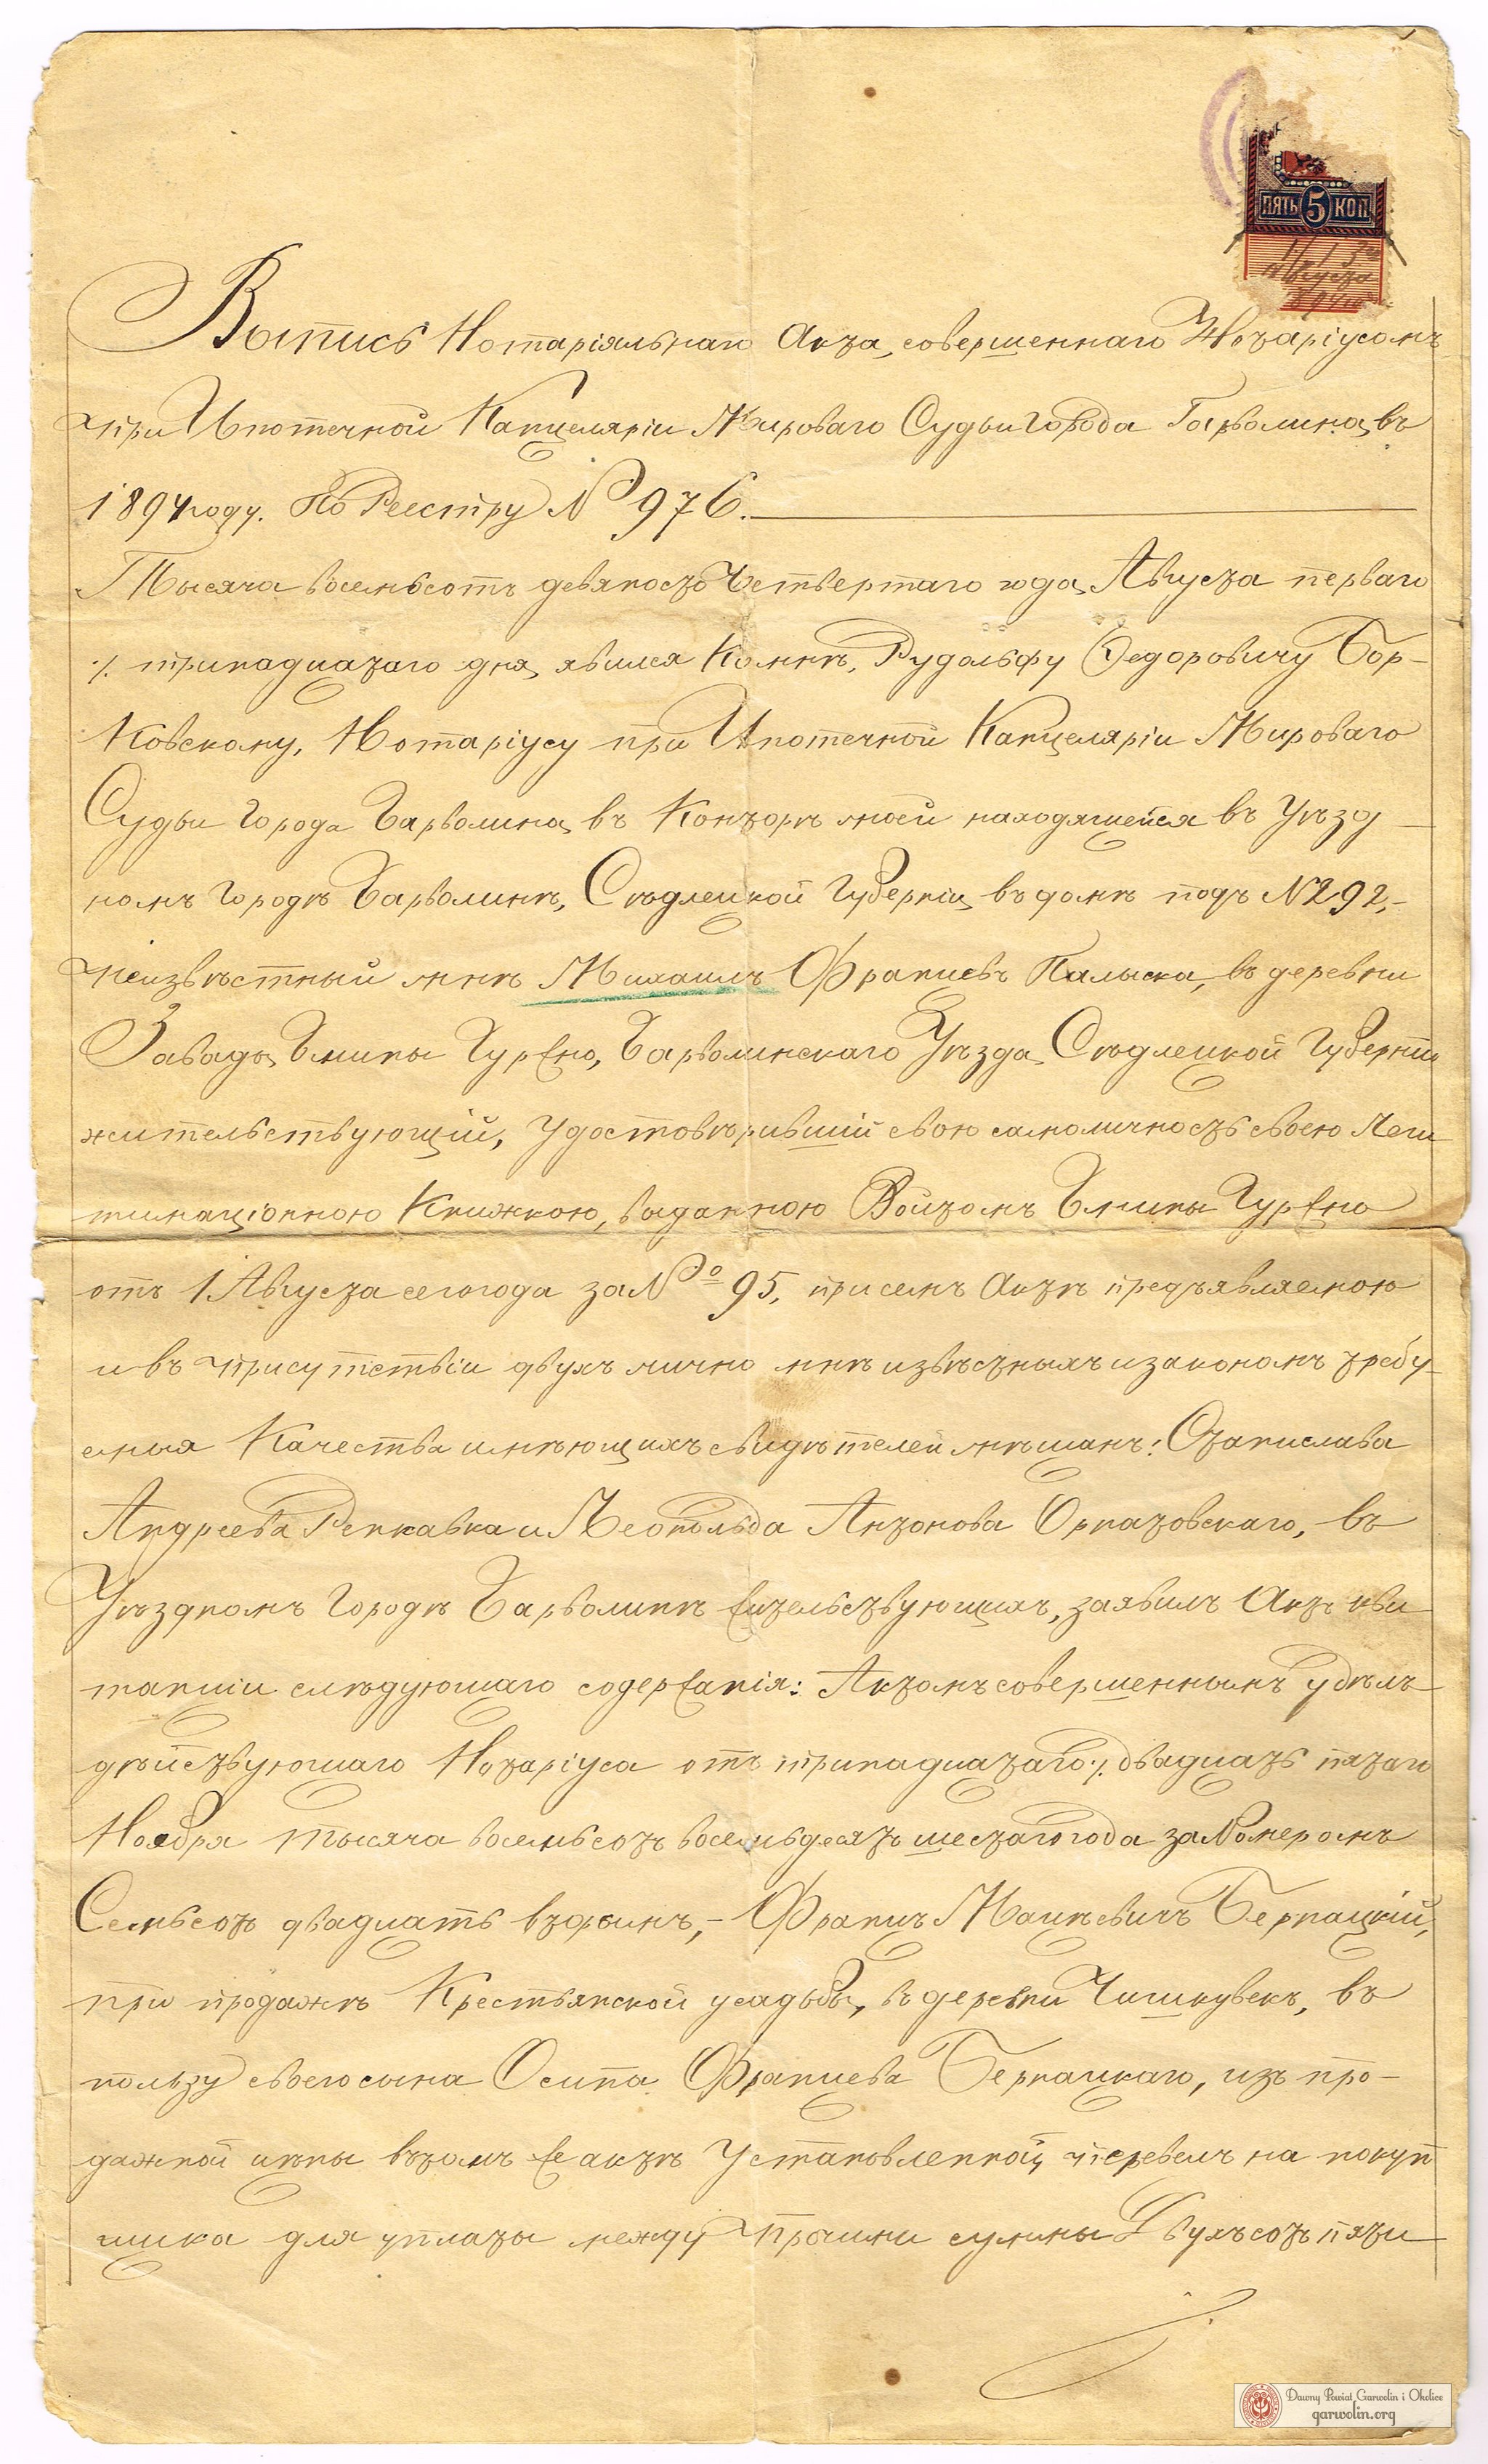 ПЯТЬ 5 КОП
1/13го
Августа
1894 г.
Выпись Нотаріяльнаго Акта, совершеннаго Нотаріусомъ
при Ипотечной Канцеляріи Мироваго Судьи города Гарволина, въ
1894 году. По Реестру № 976.
Тысяча восемьсотъ девяносто Четвертаго года, Августа перваго
·/. тринадцатаго дня, явился Ко мнѣ, Рудольфу Ѳедоровичу Бор-
Ковскому, Нотаріусу при Ипотечной Канцеляріи Мироваго
Судьи Города Гарволина, въ Конторѣ моей находящейся въ Уѣзд
номъ Городѣ Гарволинѣ, Сѣдлецкой Губерніи, въ домѣ подъ № 292,-
неизвѣстный мнѣ Михаилъ Францевъ Палыска, въ деревни
Завады, Гмины Гуржно, Гарволинскаго Уѣзда, Сѣдлецкой Губерніи
жительствующій, Удостовѣрившій свою самоличность своею Леги
тимаціонною Книжкою, выданною Войтомъ Гмины Гуржно
отъ 1 Августа сего года за № 95, при семъ Актѣ предъявляемою
и въ присутствіи двухъ лично мнѣ извѣстныхъ и закономъ требу-
емыя Качества имѣющихъ свидѣтелей мѣщанъ: Станислава
Андреева Ренкавка и Леопольда Антонова Орнатовскаго, въ
Уѣздномъ Городѣ Гарволинѣ жительствующихъ, заявилъ Актъ кви
танціи слѣдующаго содержанія: Актомъ совершеннымъ у бывъ
дѣйствующаго Нотаріуса отъ тринадцатаго ·/. двадцать пятаго
Ноября тысяча восемьсотъ восемьдесятъ шестаго года за Номеромъ
Семьсотъ двадцать вторымъ,- Францъ Мацѣевичъ Бернацкій,
при продажѣ Крестьянской усадьбы, въ деревни Чишкувекъ, въ
пользу своего сына Осипа Францева Бернацкаго, изъ про-
дажной цѣны въ томъ же актѣ Установленной, перевелъ на покуп
щика для уплаты между Прочими суммы Двухъсотъ пяти
Dawny Powiat Garwolin i Okolice
garwolin.org